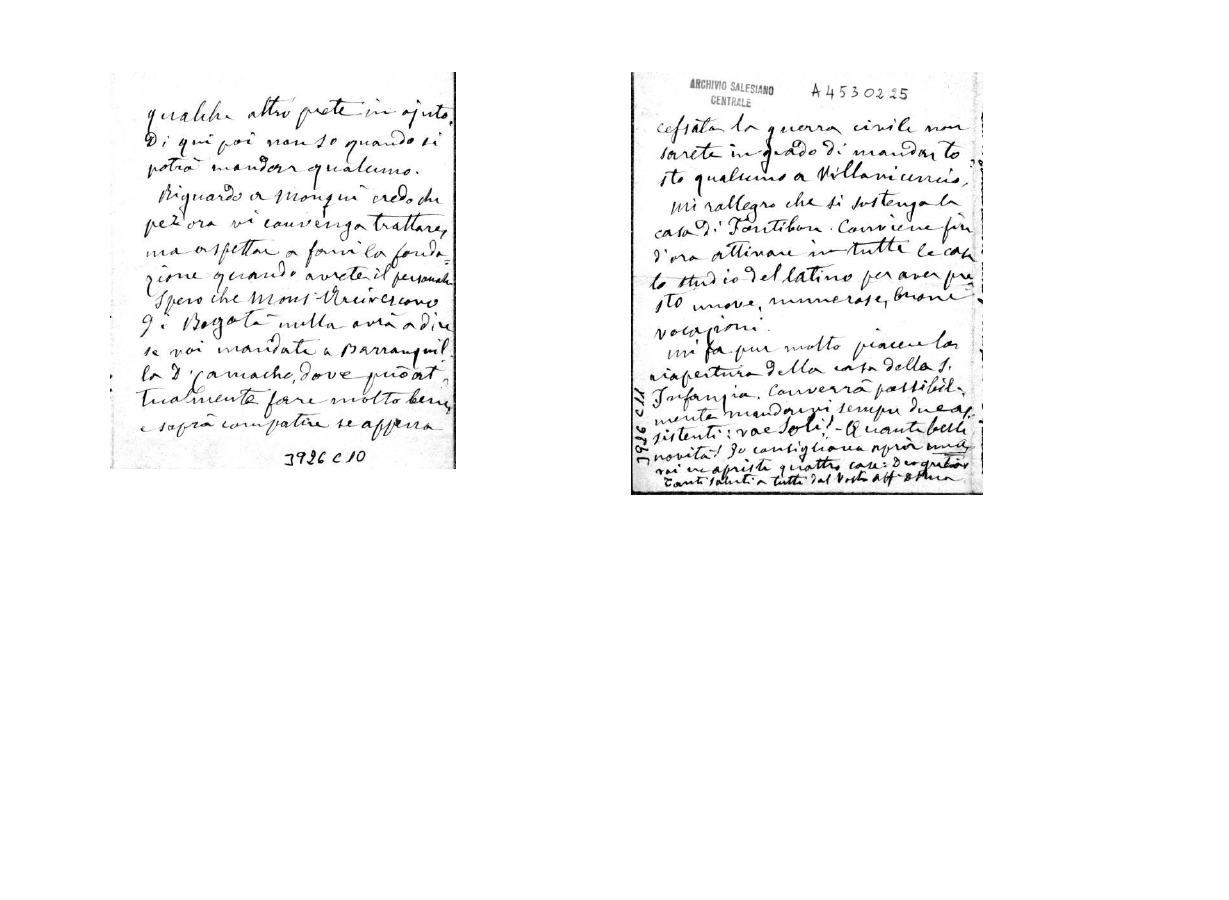 qualche altro prete in ajuto.
Di qui poi non so quando si
potrà mandar qualcuno.
Riguardo a Monquì credo che
per ora vi convenga trattare,
ma aspettar a farvi la fonda-
zione quando avrete il personale
Spero che Mons. Arcivescovo
di Bogotà nulla avrà a dire
se voi mandate a Barranquil-
la D. Camacho, dove può at-
tualmente fare molto bene,
e saprà compatire se appena
3926 C 10
ARCHIVIO SALESIANO
CENTRALE
A4530225
cessata la guerra civile non
sarete in grado di mandar to
sto qualcuno a Villavicencio.
Mi rallegro che si sostenga la
casa di Fontibon. Conviene fin
d'ora attivare in tutte le case
lo studio del latino per aver pre
sto nuove, numerose, buone
vocazioni.
Mi fa pur molto piacere la
riapertura della casa della S.
Infanzia. Converrà possibil-
mente mandarvi sempre due as-
sistenti: vae soli! - Quante belle
novità! Io consigliava aprir nulla
voi ne apriste quattro case: Deo gratias
Tanti saluti a tutti dal Vostro aff
3926 C 11